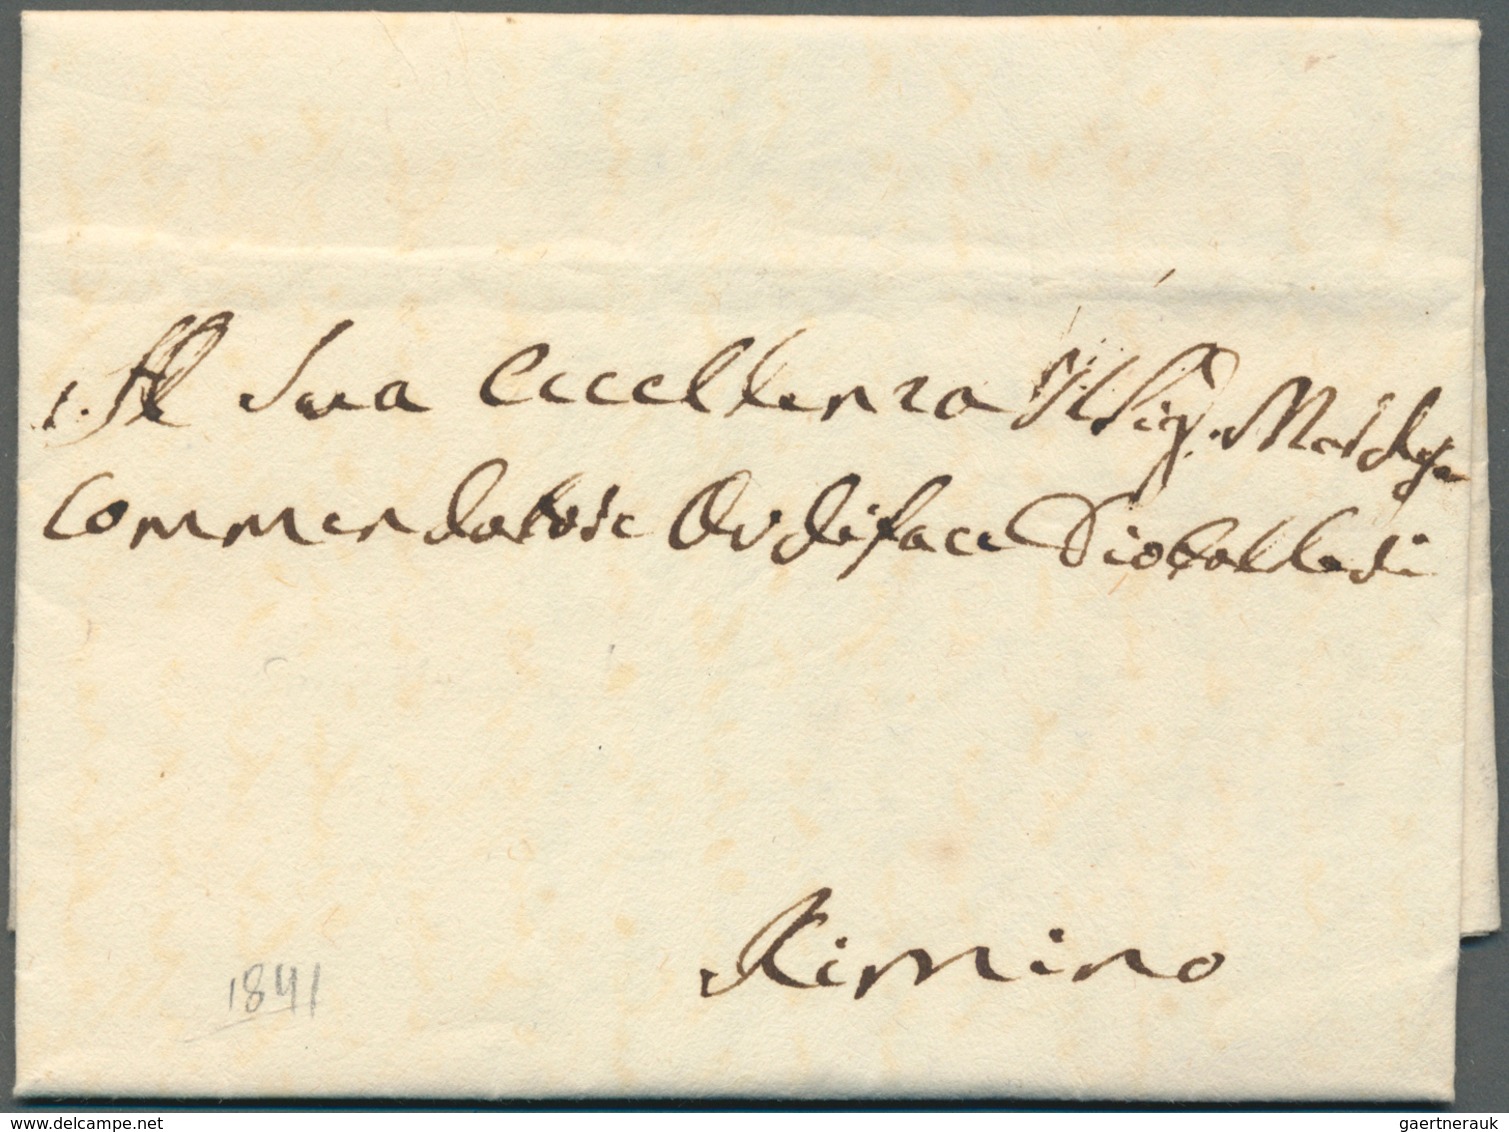 A Sua Eccellenza Il Sig. Marchese
Commendatore Audiface Diotallevi
Rimino
1841
www.delcampe.net
gaertnerauk